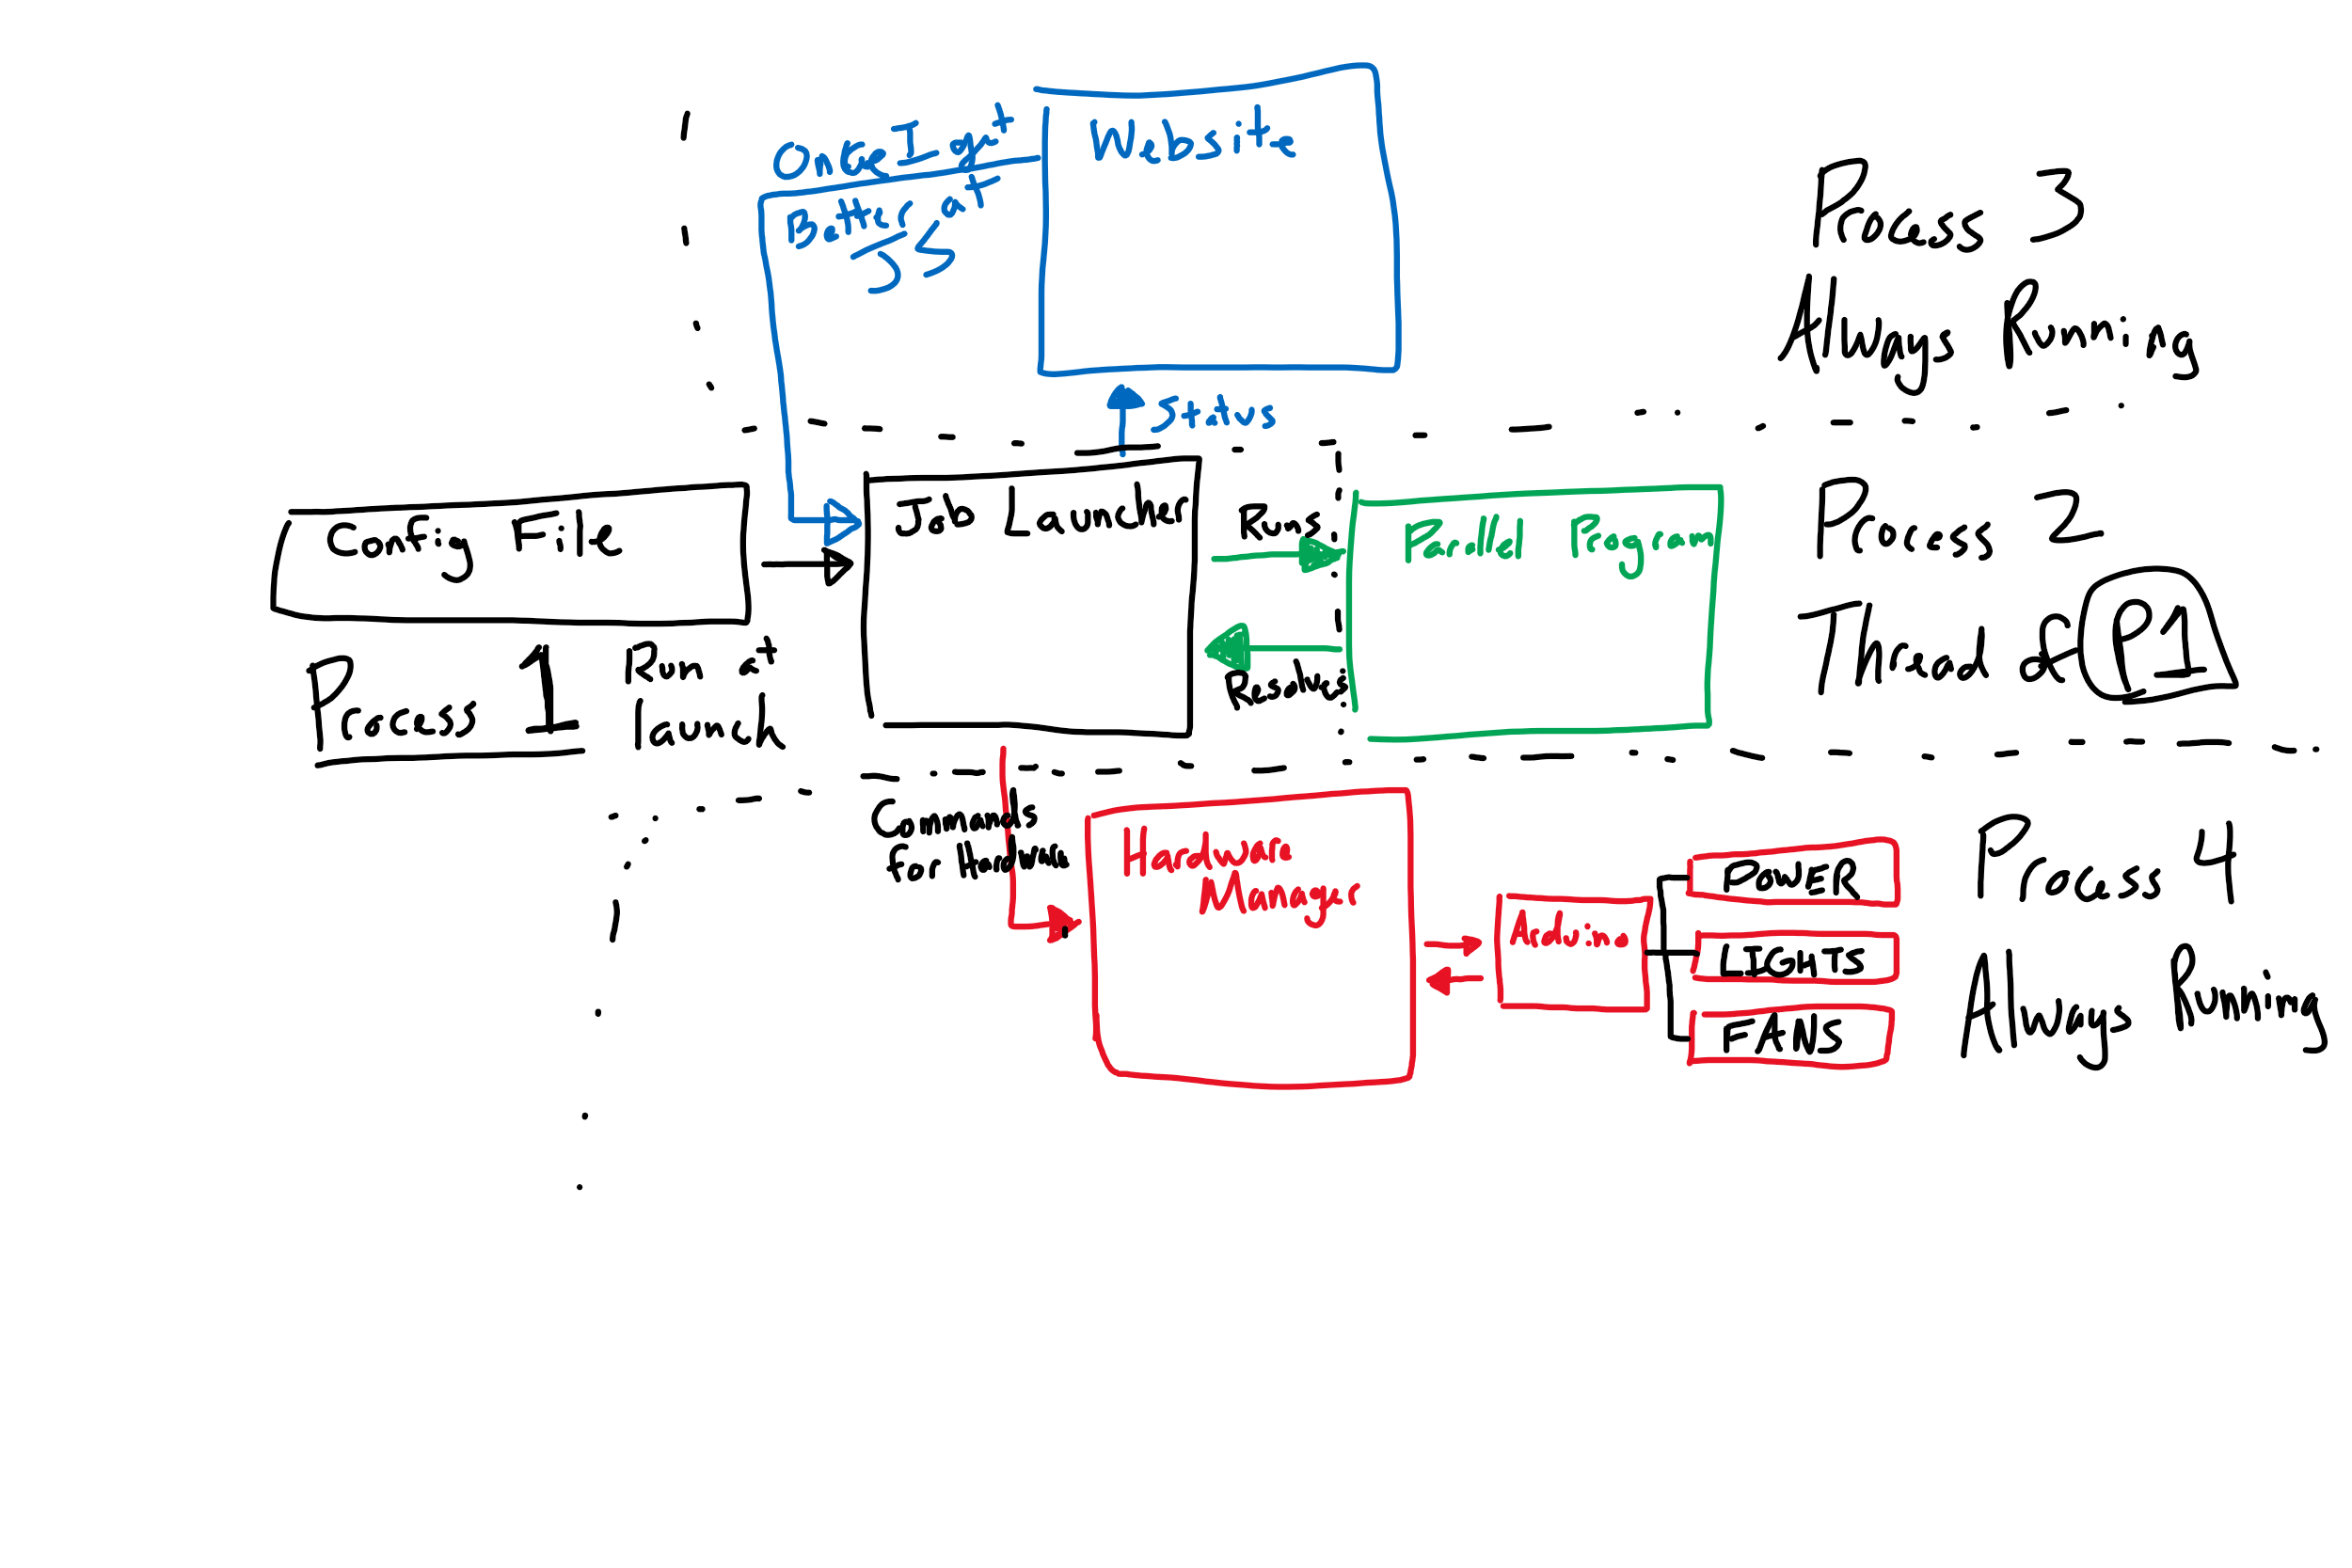 OneInst
Pattern
JSON
Website
Process 3
Always Running
Status
Config File
Job Launcher
Runs
Field Program
Process 2
Thread of P1
Results
Process 1
Run at
launch
Commands
for Hardware
Hardware
Manager
Arduino
POWER
LIGHTS
FANS
Process 4
Always Running